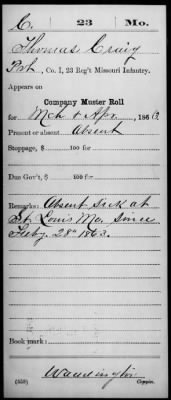 C. 23 Mo.
Thomas Craig
Pvt, Co. I, 23 Reg't Missouri Infantry.
Appears on
Company Muster Roll
for Mch & Apr, 1863.
Present or absent Absent
Stoppage, $ 100 for
Due Gov't, $ 100 for
Remarks: Absent Sick at
St. Louis Mo. Since
Feby. 28" 1863.
Book mark:
(358) Copyist.